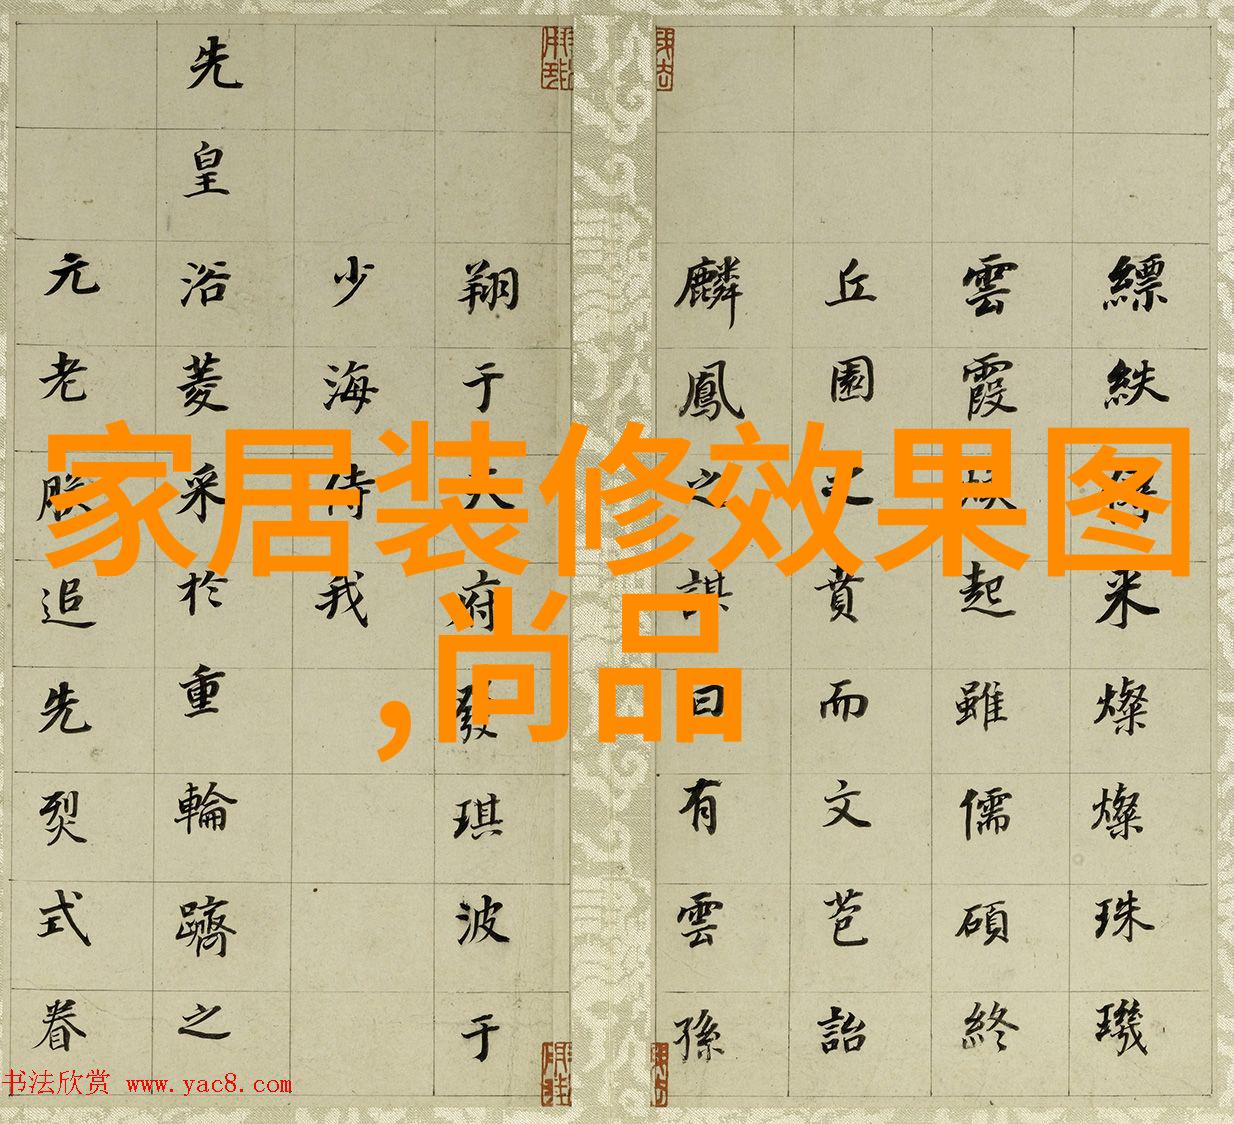 縹紩采燦燦珠璣
雲霞起雖儒碩終
丘園之賁而文芑詒
麟鳳之謀曰有雲孫
翔于天府發琪波于
少海侍我
先皇浴菱采於重輪躋之
元老朕追先烈式眷
家居装修效果图
,尚品
书法欣赏 www.yac8.com